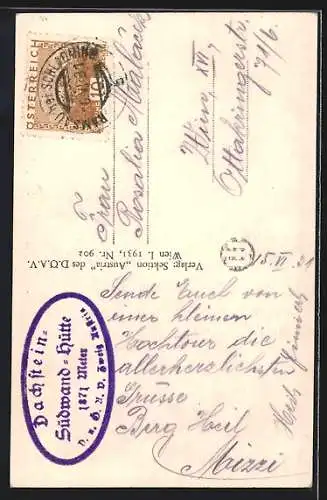 ÖSTERREICH
10
RAMSAU BEI SCHLADMING
Frau
Rosalia
Wien XVI.
Ottakringerstr.
71/6.
Verlag: Sektion „Austria" des D.Ö.A.V.
Wien I. 1931, Nr. 902
15. VI. 31
Sende Euch von
einer kleinen
Hochtour die
allerherzlichsten
Grüsse
Berg Heil
Mizzi
Dachstein-
Südwand-Hütte
1871 Meter